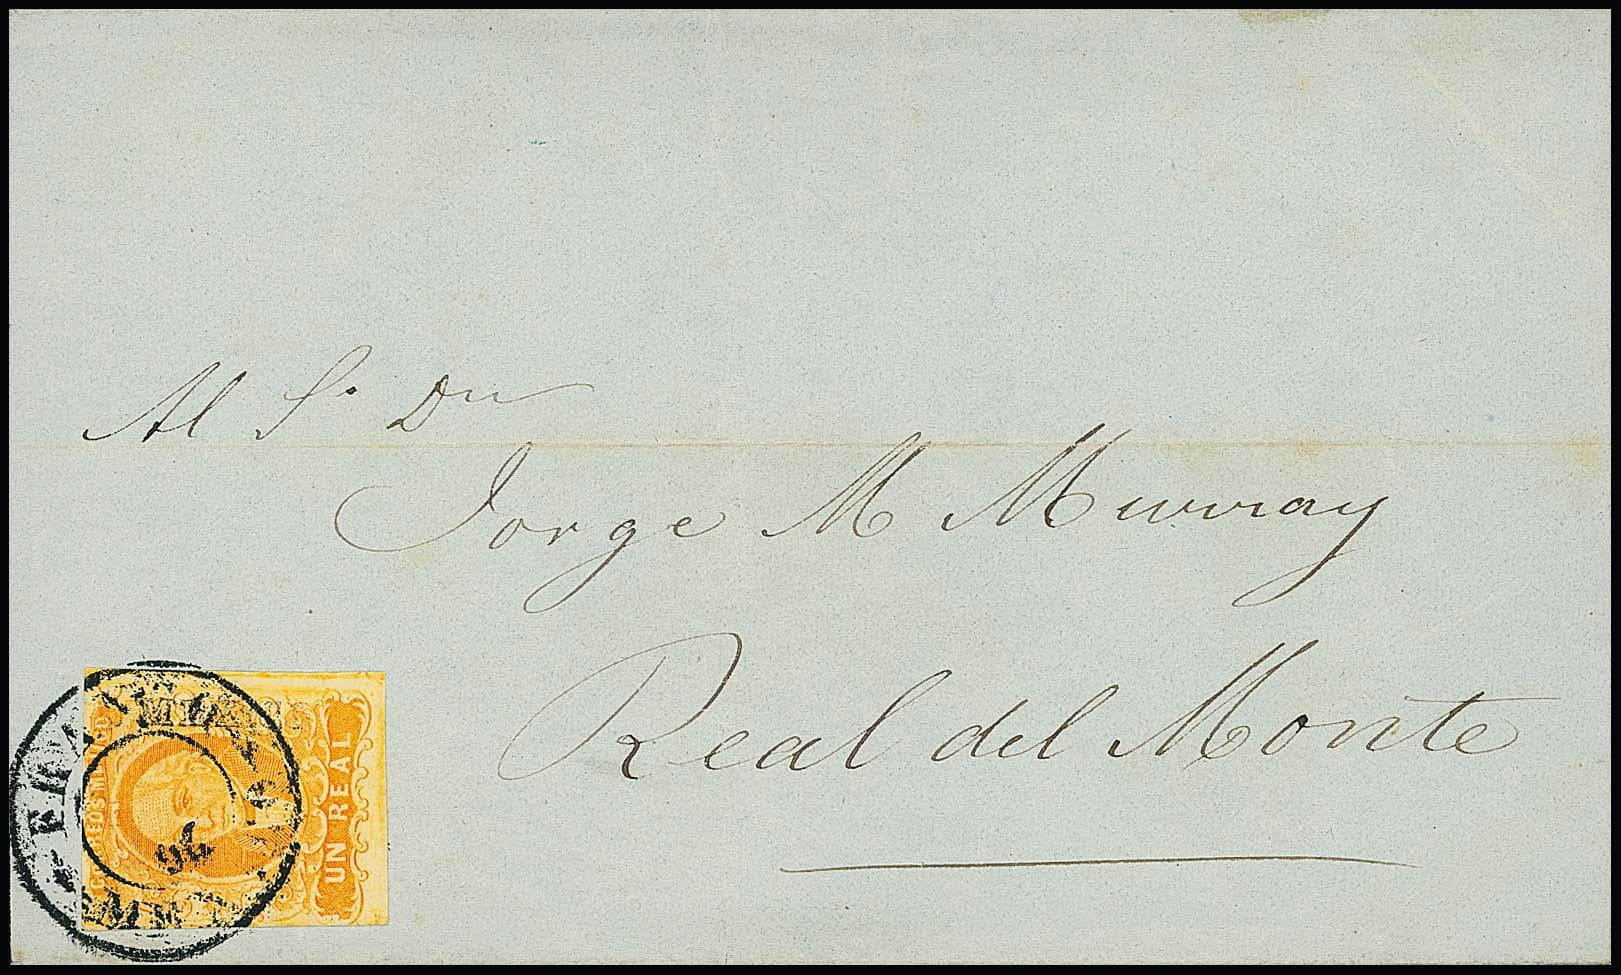 Al S.r Dn
Jorge M Murray
Real del Monte
UN REAL